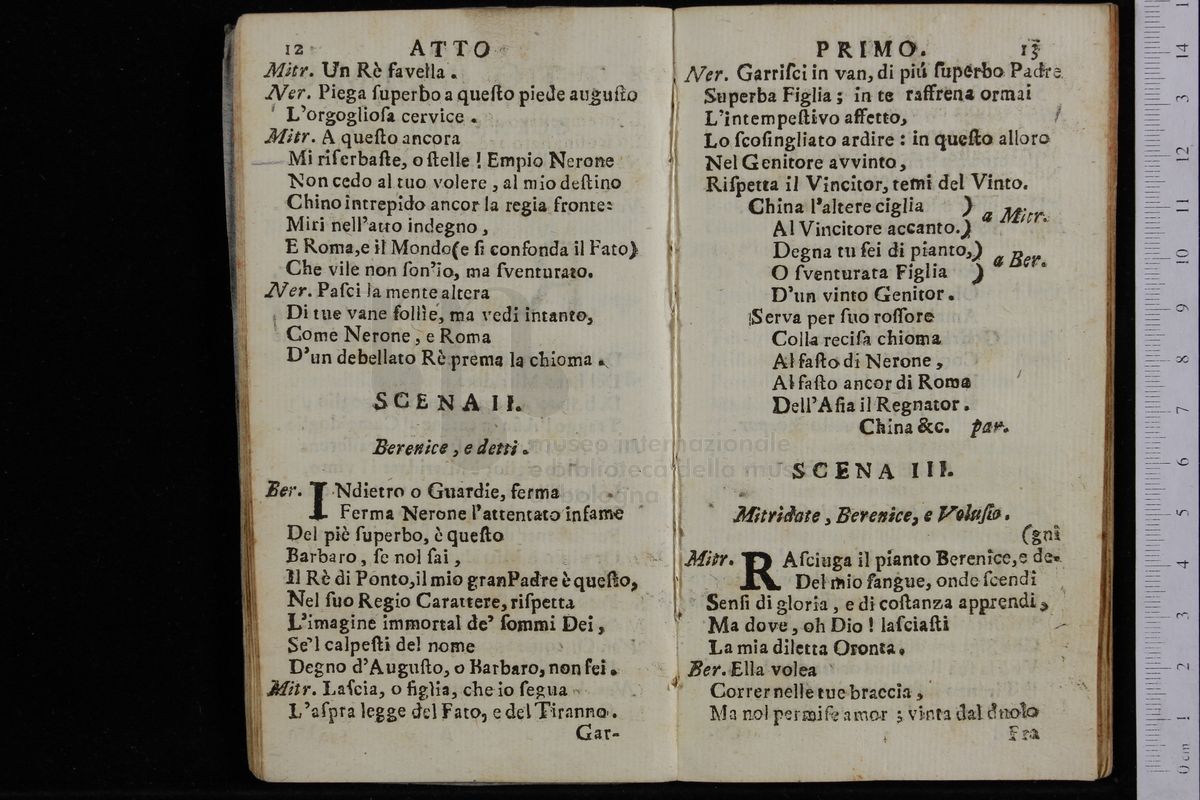 12 ATTO
Mitr. Un Rè favella .
Ner. Piega ſuperbo a queſto piede auguſto
L'orgoglioſa cervice .
Mitr. A queſto ancora
Mi riſerbaſte, o ſtelle ! Empio Nerone
Non cedo al tuo volere , al mio deſtino
Chino intrepido ancor la regia fronte:
Miri nell'atto indegno ,
E Roma,e il Mondo(e ſi confonda il Fato)
Che vile non ſon'io, ma ſventurato.
Ner. Paſci la mente altera
Di tue vane follìe, ma vedi intanto,
Come Nerone , e Roma
D'un debellato Rè prema la chioma .
SCENA II.
Berenice , e detti .
Ber. INdietro o Guardie, ferma
Ferma Nerone l'attentato infame
Del piè ſuperbo, è queſto
Barbaro , ſe nol ſai ,
Il Rè di Ponto,il mio granPadre è queſto,
Nel ſuo Regio Carattere, riſpetta
L'imagine immortal de' ſommi Dei ,
Se'l calpeſti del nome
Degno d'Auguſto, o Barbaro, non ſei .
Mitr. Laſcia, o figlia, che io ſegua
L'aſpra legge del Fato, e del Tiranno .
Gar-
PRIMO. 13
Ner. Garriſci in van, di piú ſuperbo Padre
Superba Figlia ; in te raffrena ormai
L'intempeſtivo affetto,
Lo ſcoſingliato ardire : in queſto alloro
Nel Genitore avvinto ,
Riſpetta il Vincitor, temi del Vinto.
China l'altere ciglia )
Al Vincitore accanto.) a Mitr.
Degna tu ſei di pianto,)
O ſventurata Figlia ) a Ber.
D'un vinto Genitor .
Serva per ſuo roſſore
Colla reciſa chioma
Al faſto di Nerone ,
Al faſto ancor di Roma
Dell'Aſia il Regnator .
China &c. par.
SCENA III.
Mitridate , Berenice, e Voluſio .
(gni
Mitr. RAſciuga il pianto Berenice,e de-
Del mio ſangue, onde ſcendi
Senſi di gloria , e di coſtanza apprendi ,
Ma dove , oh Dio ! laſciaſti
La mia diletta Oronta.
Ber. Ella volea
Correr nelle tue braccia ,
Ma nol permiſe amor ; vinta dal duolo
Fra
museo internazionale
e biblioteca della musica
bologna
0 cm 1 2 3 4 5 6 7 8 9 10 11 12 13 14